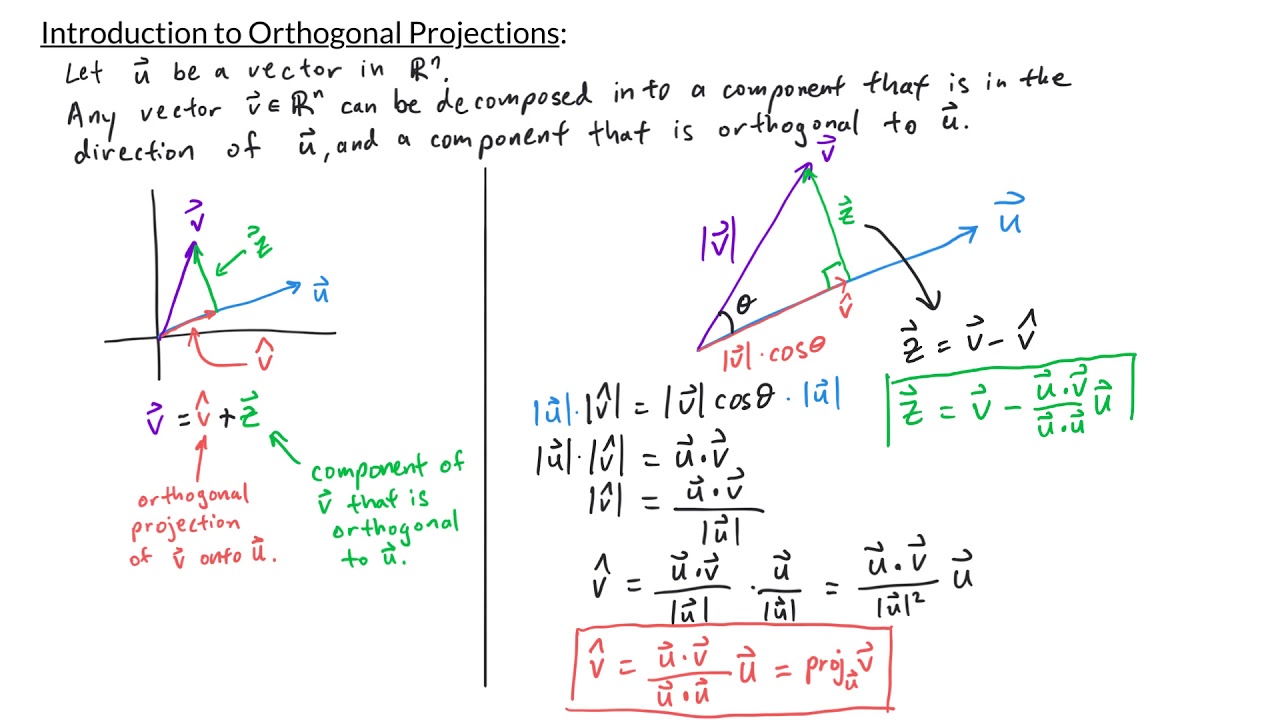 Introduction to Orthogonal Projections:
Let u⃗ be a vector in ℝⁿ.
Any vector v⃗ ∈ ℝⁿ can be decomposed into a component that is in the
direction of u⃗, and a component that is orthogonal to u⃗.
v⃗
z⃗
u⃗
v̂
v⃗ = v̂ + z⃗
orthogonal
projection
of v⃗ onto u⃗.
component of
v⃗ that is
orthogonal
to u⃗.
v⃗
|v⃗|
z⃗
u⃗
θ
v̂
|v⃗| · cosθ
z⃗ = v⃗ − v̂
z⃗ = v⃗ − (u⃗·v⃗)/(u⃗·u⃗) u⃗
|u⃗|·|v̂| = |v⃗| cosθ · |u⃗|
|u⃗|·|v̂| = u⃗·v⃗
|v̂| = (u⃗·v⃗)/|u⃗|
v̂ = (u⃗·v⃗)/|u⃗| · u⃗/|u⃗| = (u⃗·v⃗)/|u⃗|² u⃗
v̂ = (u⃗·v⃗)/(u⃗·u⃗) u⃗ = proj_u⃗ v⃗